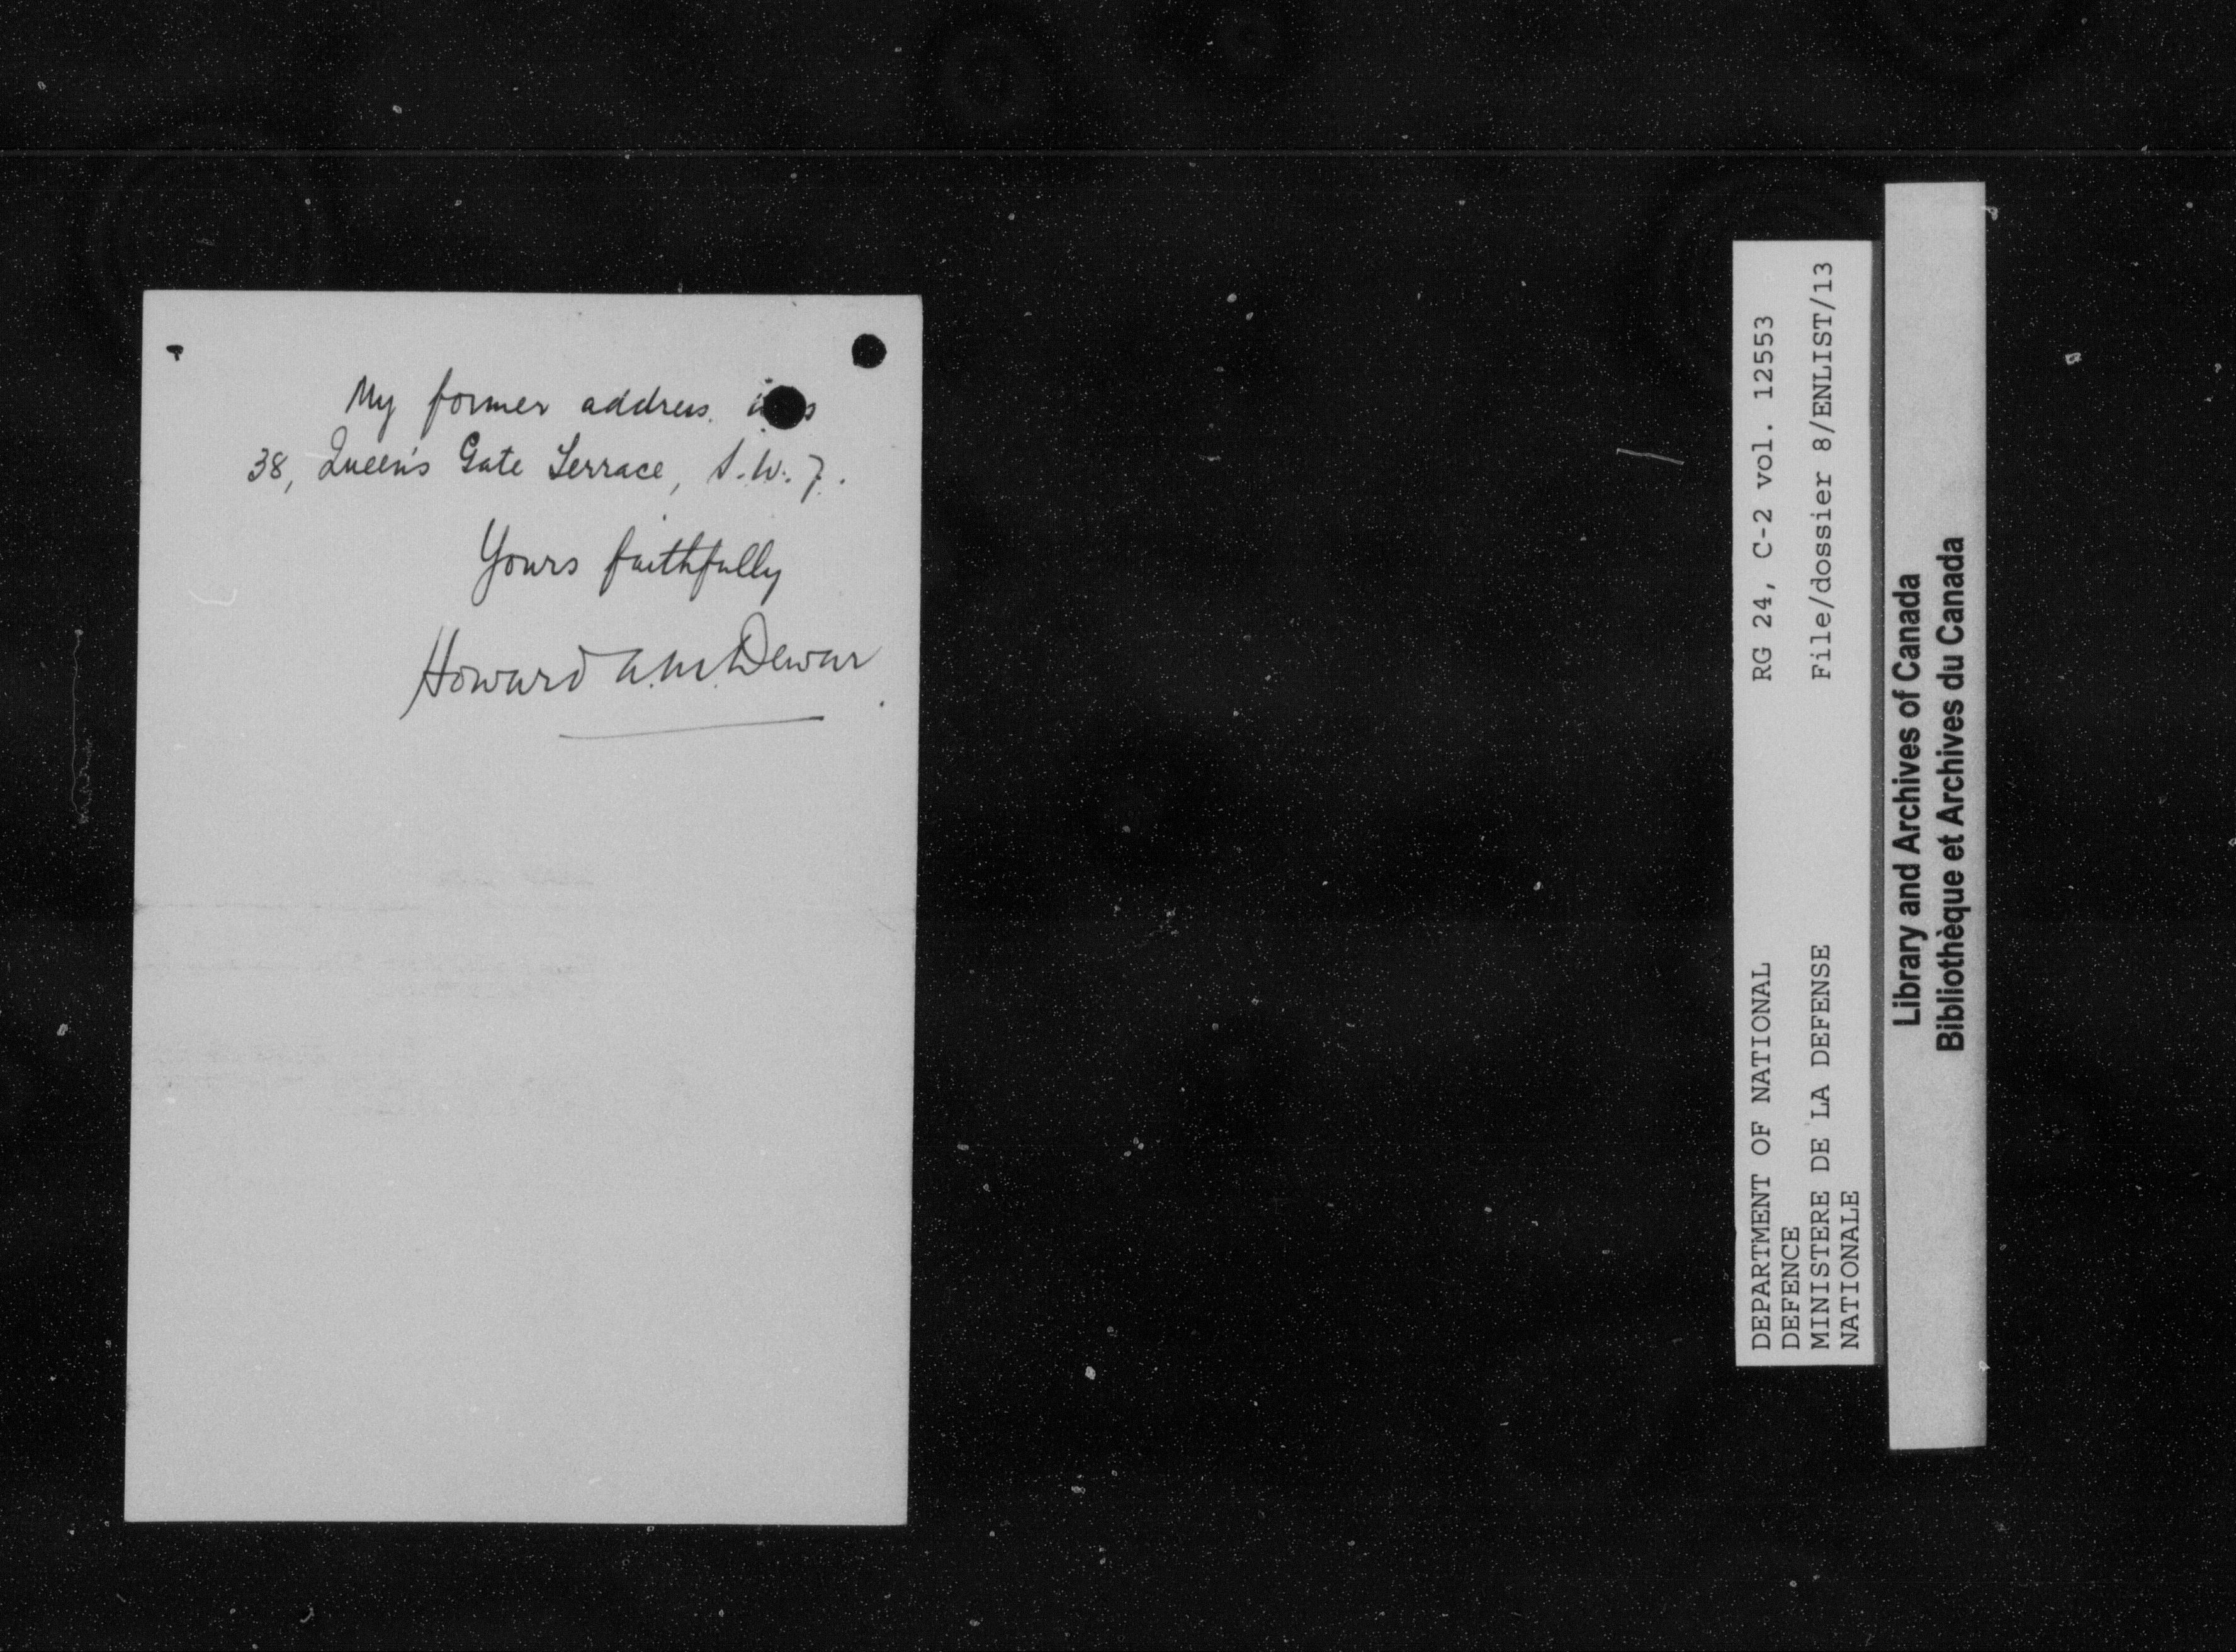 My former address was
38, Queen's Gate Terrace, S.W.7.
Yours faithfully
Howard A.M. Dewar
DEPARTMENT OF NATIONAL
DEFENCE
MINISTERE DE LA DEFENSE
NATIONALE
RG 24, C-2 vol. 12553
File/dossier 8/ENLIST/13
Library and Archives of Canada
Bibliothèque et Archives du Canada